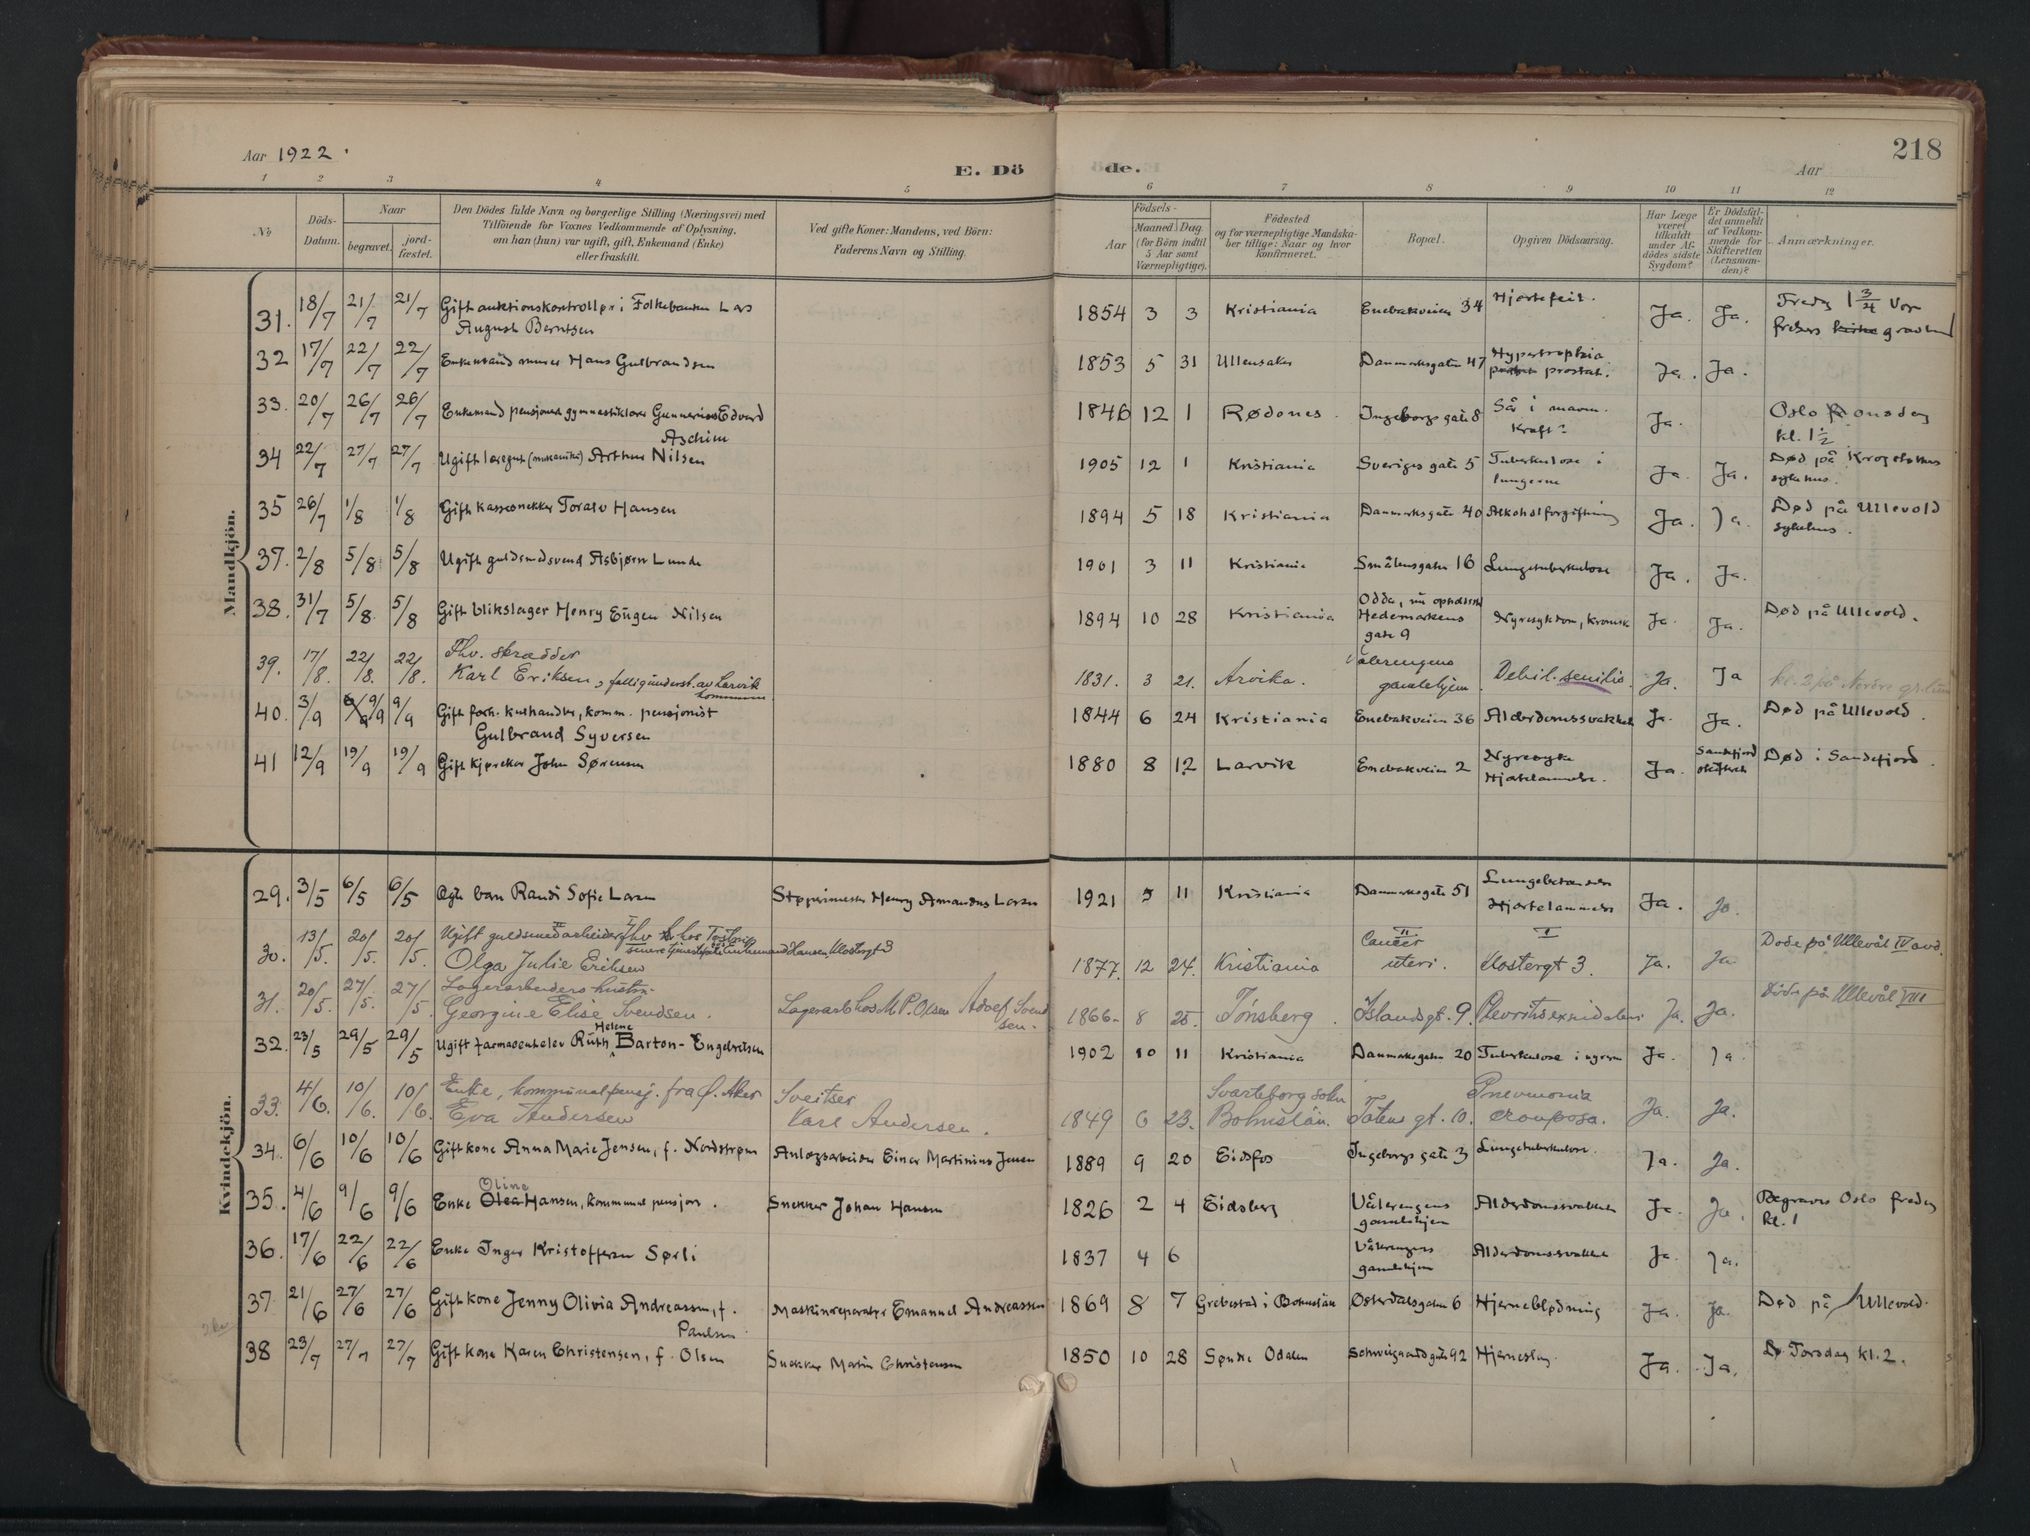 Aar 1922.
E. Dö
de.
Aar
218
1 2 3 4 5 6 7 8 9 10 11 12
No
Döds-Datum.
Naar
begravet.
jord-fæstet.
Den Dödes fulde Navn og borgerlige Stilling (Næringsvei) med
Tilföiende for Voxnes Vedkommende af Oplysning,
om han (hun) var ugift, gift, Enkemand (Enke)
eller fraskilt.
Ved gifte Koner: Mandens, ved Börn:
Faderens Navn og Stilling.
Födsels-
Aar
Maaned Dag.
(for Börn indtil
5 Aar samt
Værnepligtige).
Födested
og for værnepligtige Mandska-
ber tillige: Naar og hvor
konfirmeret.
Bopæl.
Opgiven Dödsaarsag.
Har Læge
været
tilkaldt
under Af-
dödes sidste
Sygdom?
Er Dödsfal-
det anmeldt
af Vedkom-
mende for
Skifteretten
(Lensman-
den)?
Anmærkninger.
Mandkjön.
31. 18/7 21/7 21/7 Gift auktionskontrollør i Folkebanken Lars
August Berntsen
1854 3 3 Kristiania Enebakveien 34 Hjertefeil. Ja. Ja. Fredag 1 3/4 Vor
frelsers kirke gravlund
32 17/7 22/7 22/7 Enkemand murer Hans Gulbrandsen
1853 5 31 Ullensaker Danmarksgaten 47 Hypertrophia
prostat. Ja. Ja.
33. 20/7 26/7 26/7 Enkemand pensjonert gymnastiklærer Gunnerius Edvard
Aschim
1846 12 1 Rødenes. Ingeborgs gate 8 Sår i maven.
Kræft? Ja. Oslo onsdag
kl. 1 1/2
34 22/7 27/7 27/7 Ugift læregut (mekaniker) Arthur Nilsen
1905 12 1 Kristiania Sveriges gate 5 Tuberkulose i
lungerne Ja. Ja. Død på Krogstøttens
sykehus.
35 26/7 1/8 1/8 Gift kassesnekker Toralv Hansen
1894 5 18 Kristiania Danmarksgate 40 Alkoholforgiftning Ja. Ja. Død på Ullevold
sykehus.
37. 2/8 5/8 5/8 Ugift guldsmedsvend Asbjørn Lunde
1901 3 11 Kristiania Smålensgaten 16 Lungetuberkulose Ja. Ja.
38. 31/7 5/8 5/8 Gift blikslager Henry Eugen Nilsen
1894 10 28 Kristiania Odda, nu
Hedemarkens
gate 9 Nyresykdom, kronisk Ja. Ja. Død på Ullevold.
39. 17/8. 22/8. 22/8. Fhv. skrædder
Karl Eriksen, fattigunderst. av Larvik
kommune
1831. 3 21. Arvika. Vålerengens
gamlehjem Debil. senilis. Ja. Ja kl. 2 på Nordre gr.lund
40. 3/9 9/9 9/9 Gift forh. kulhandler, komm. pensjonist
Gulbrand Syversen
1844 6 24 Kristiania Enebakveien 36 Alderdomssvakhet Ja. Ja. Død på Ullevold.
41 12/9 19/9 19/9 Gift kjørekar John Sørensen
1880 8 12 Larvik Enebakveien 2 Nyresyke
Hjertelammelse. Ja. Sandefjord
skifteret Død i Sandefjord.
Kvindekjön.
29. 3/5 6/5 6/5 Egte barn Randi Sofie Larsen Støperimester Henry Amandus Larsen
1921 5 11 Kristiania Danmarksgate 51 Lungebetændelse
Hjertelammelse Ja. Ja.
30. 13/5. 20/5. 20/5. Ugift guldsmedarbeider fhv. hos Tostrup
senere tjenestepike hos Enkemand Hansen Klostergt 3
Olga Julie Eriksen
1877. 12 24. Kristiania Cancer
uteri. II I Klostergt 3. Ja. Ja Døde på Ullevål IV avd.
31. 20/5. 27/5. 27/5. Lagerarbeiders hustru
Georgine Elise Svendsen. Lagerarb hos M. P. Olsen Adolf Svend
sen.
1866. 8 25. Tønsberg. Islandsgt. 9. Plevritis exsudativ. Ja. Ja. Døde på Ullevål VIII
32. 23/5 29/5 29/5 Ugift farmaceutelev Ruth Helene Barton-Engelretsen
1902 10 11 Kristiania Danmarksgaten 20 Tuberkulose i nyrern Ja. Ja.
33. 4/6. 10/6. 10/6. Enke, kommunalpensj. fra Ø. Aker
Eva Andersen Sveitser
Karl Andersen.
1849 6 23. Svarteborg sokn
Bohuslän. Totens gt. 10. Pneumonia
crouposa. Ja. Ja.
34. 6/6 10/6 10/6 Gift kone Anna Marie Jensen, f. Nordstrøm Anlægsarbeider Einar Martinius Jensen
1889 9 20 Eidsfos Ingeborgs gate 3 Lungetuberkulose. Ja. Ja.
35. 4/6 9/6 9/6 Enke Olea Oline Hansen, kommunal pensjon. Snekker Johan Hansen
1826 2 4 Eidsberg Vålerengens
gamlehjem Alderdomssvakhet Ja. Ja. Begraves Oslo fredag
kl. 1
36. 17/6 22/6 22/6 Enke Inger Kristoffersen Sørli
1837 4 6 Vålerengens
gamlehjem Alderdomssvakhet Ja. Ja.
37. 21/6 27/6 27/6 Gift kone Jenny Olivia Andreassen, f.
Paulsen Maskinreparatør Emanuel Andreassen
1869 8 7 Grebestad i Bohuslän Østerdalsgaten 6 Hjerneblødning Ja. Ja. Død på Ullevold.
38 23/7 27/7 27/7 Gift kone Karen Christensen, f. Olsen Snekker Martin Christensen
1850 10 28 Søndre Odalen Schweigaardsgate 92 Hjerneslag. Ja. Ja. Torsdag kl. 2.